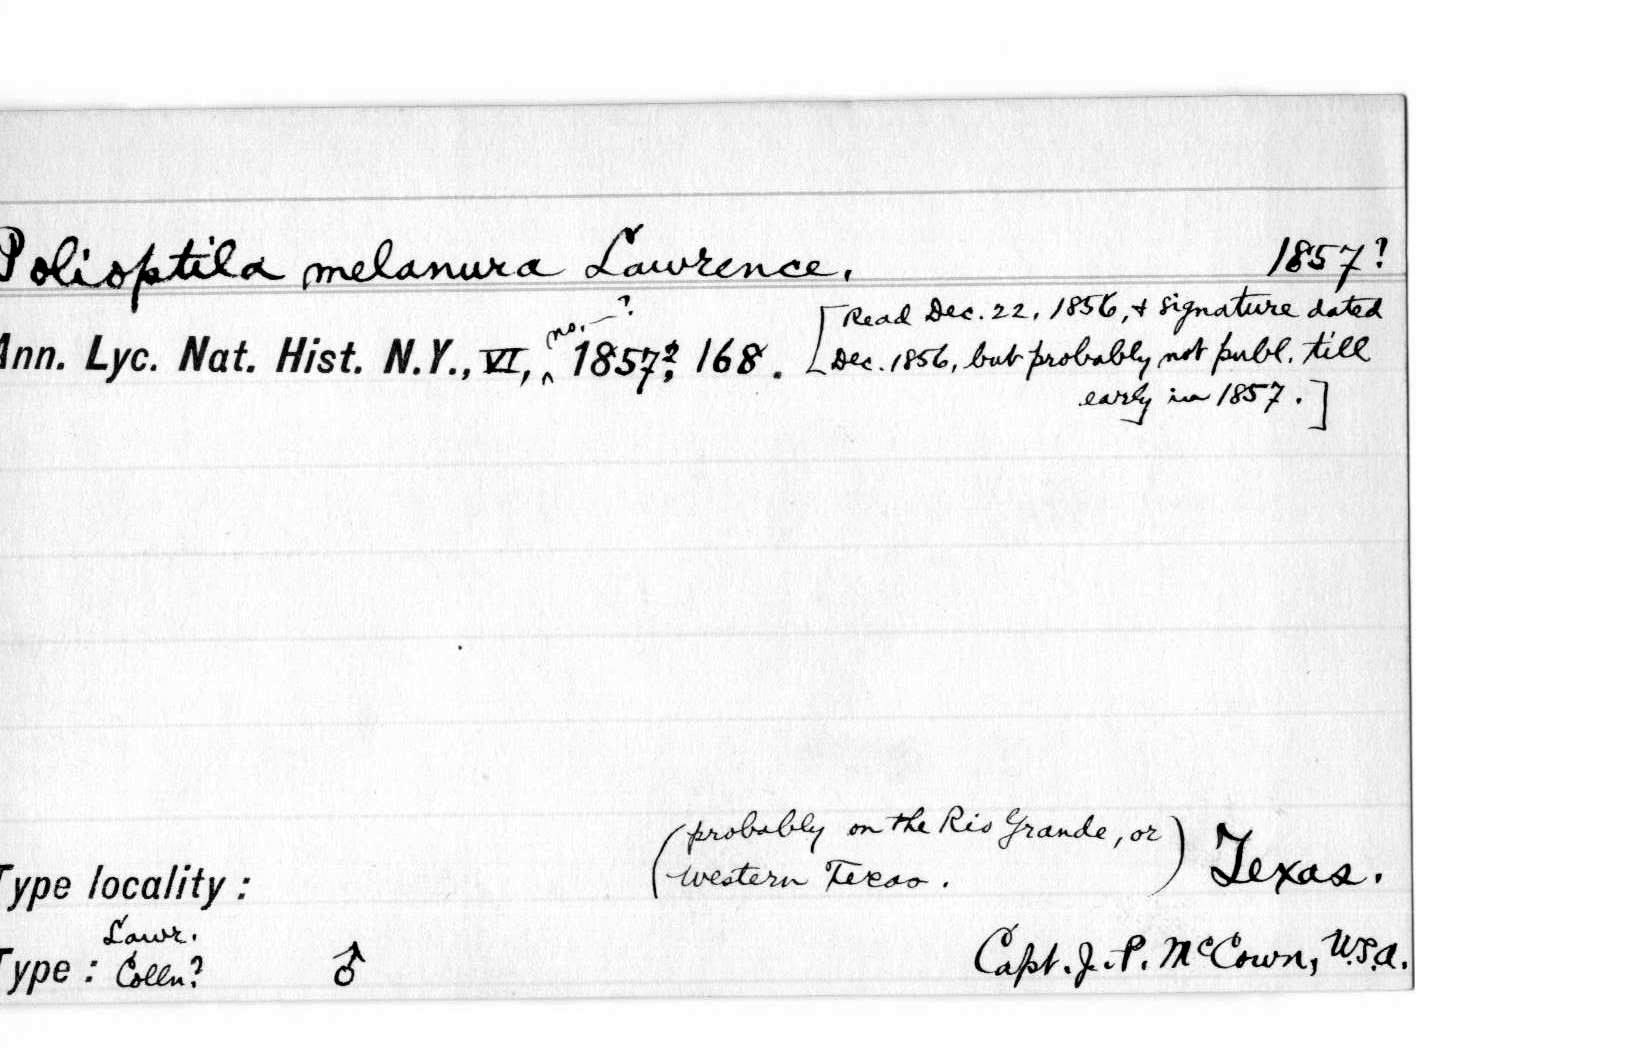 Polioptila melanura Lawrence. 1857?
Ann. Lyc. Nat. Hist. N.Y., VI, no. —? 1857?, 168. [Read Dec. 22, 1856, & signature dated
Dec. 1856, but probably not publ. till
early in 1857.]
(probably on the Rio Grande, or
western Texas.)
Type locality: Texas.
Lawr.
Type: Colln? ♂ Capt. J. P. McCown, U.S.A.